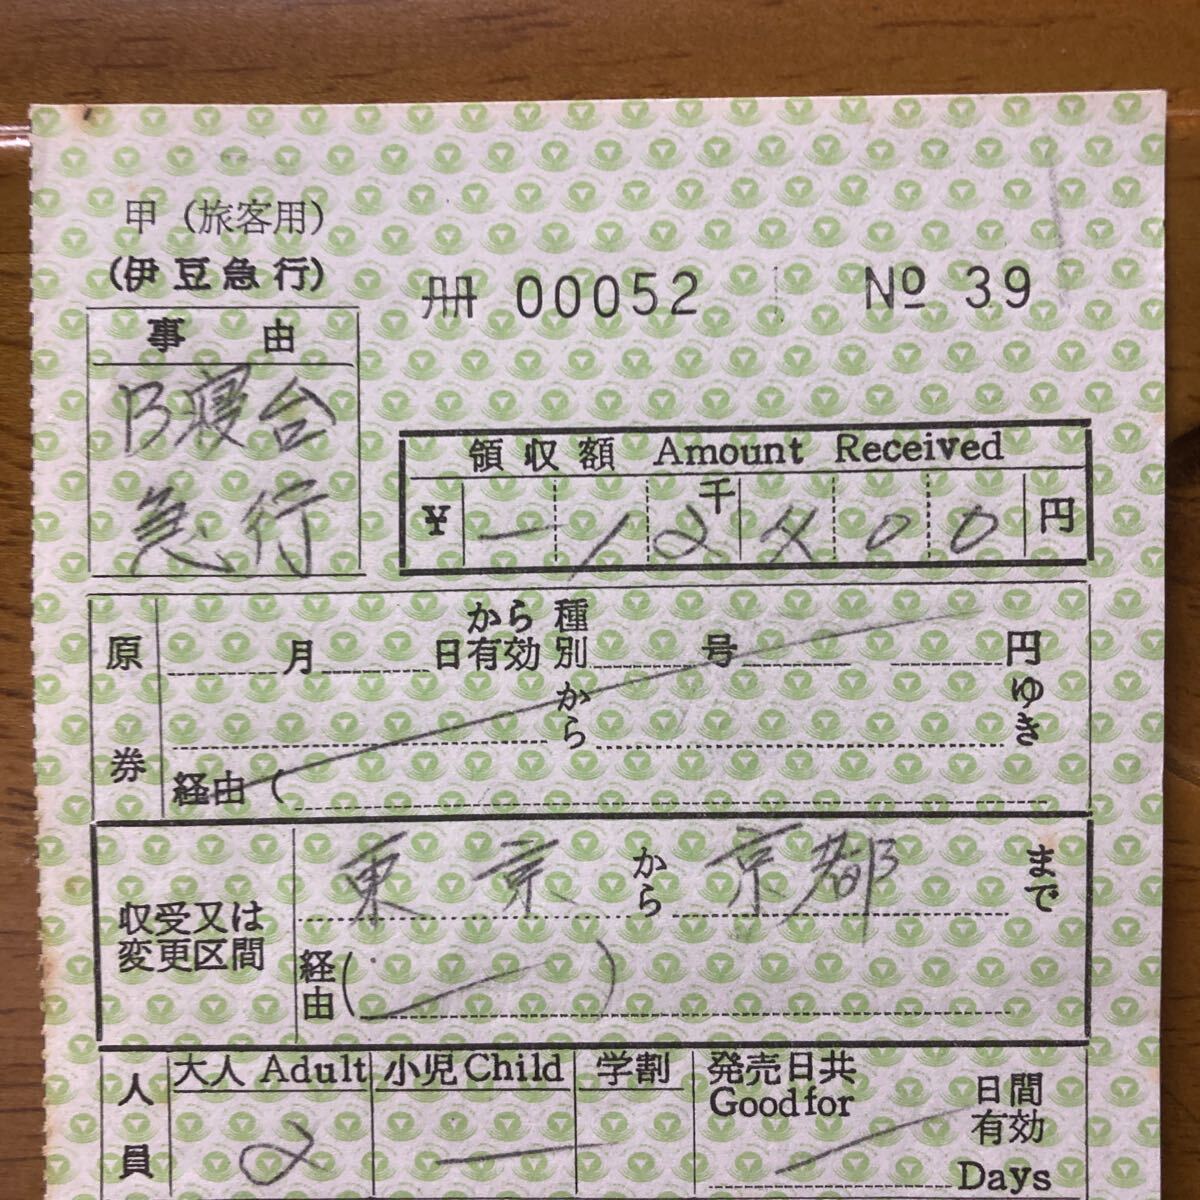 甲（旅客用）
（伊豆急行）
冊 00052 № 39
事由
B寝台
急行
領収額 Amount Received
千
¥ － 1 2 4 0 0 円
原券
月 日から有効 種別 号 円
から ゆき
経由（
収受又は変更区間
東京 から 京都 まで
経由（ ）
人員
大人 Adult 小児 Child 学割 発売日共 日間有効
Good for Days
2 －